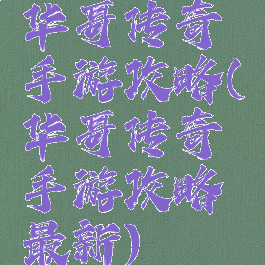 华哥传奇
手游攻略(
华哥传奇
手游攻略
最新)